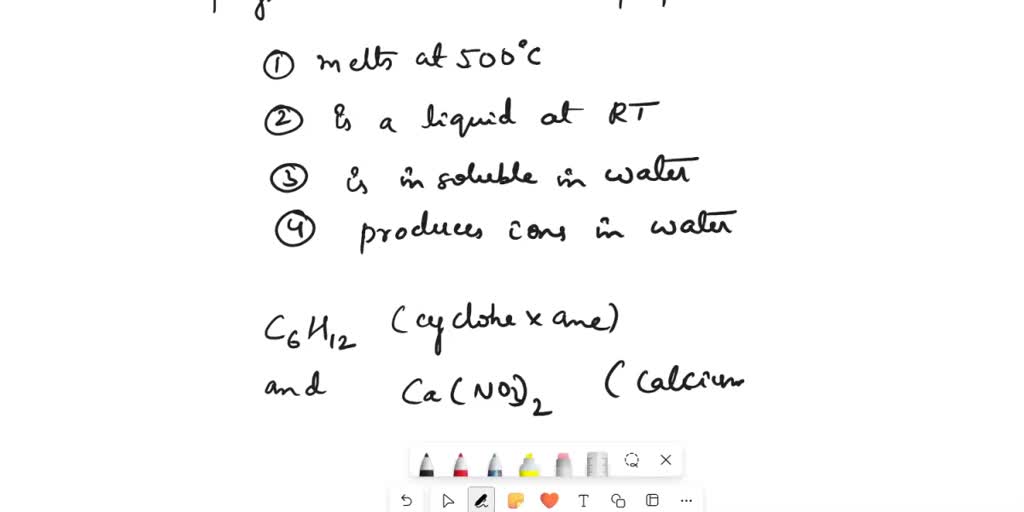 ① melts at 500°C
② is a liquid at RT
③ is in soluble in water
④ produces ions in water
C₆H₁₂ (cyclohexane)
and Ca(NO₃)₂ (Calcium
T